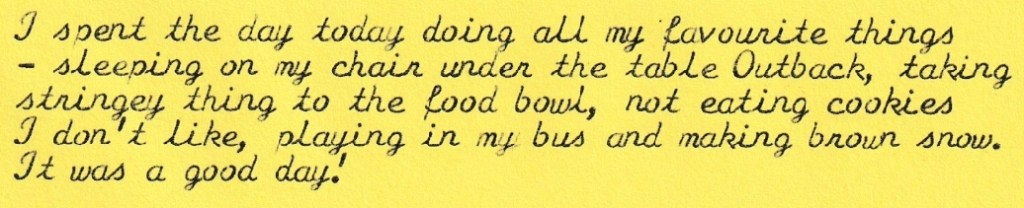 I spent the day today doing all my favourite things
- sleeping on my chair under the table Outback, taking
stringey thing to the food bowl, not eating cookies
I don't like, playing in my bus and making brown snow.
It was a good day!